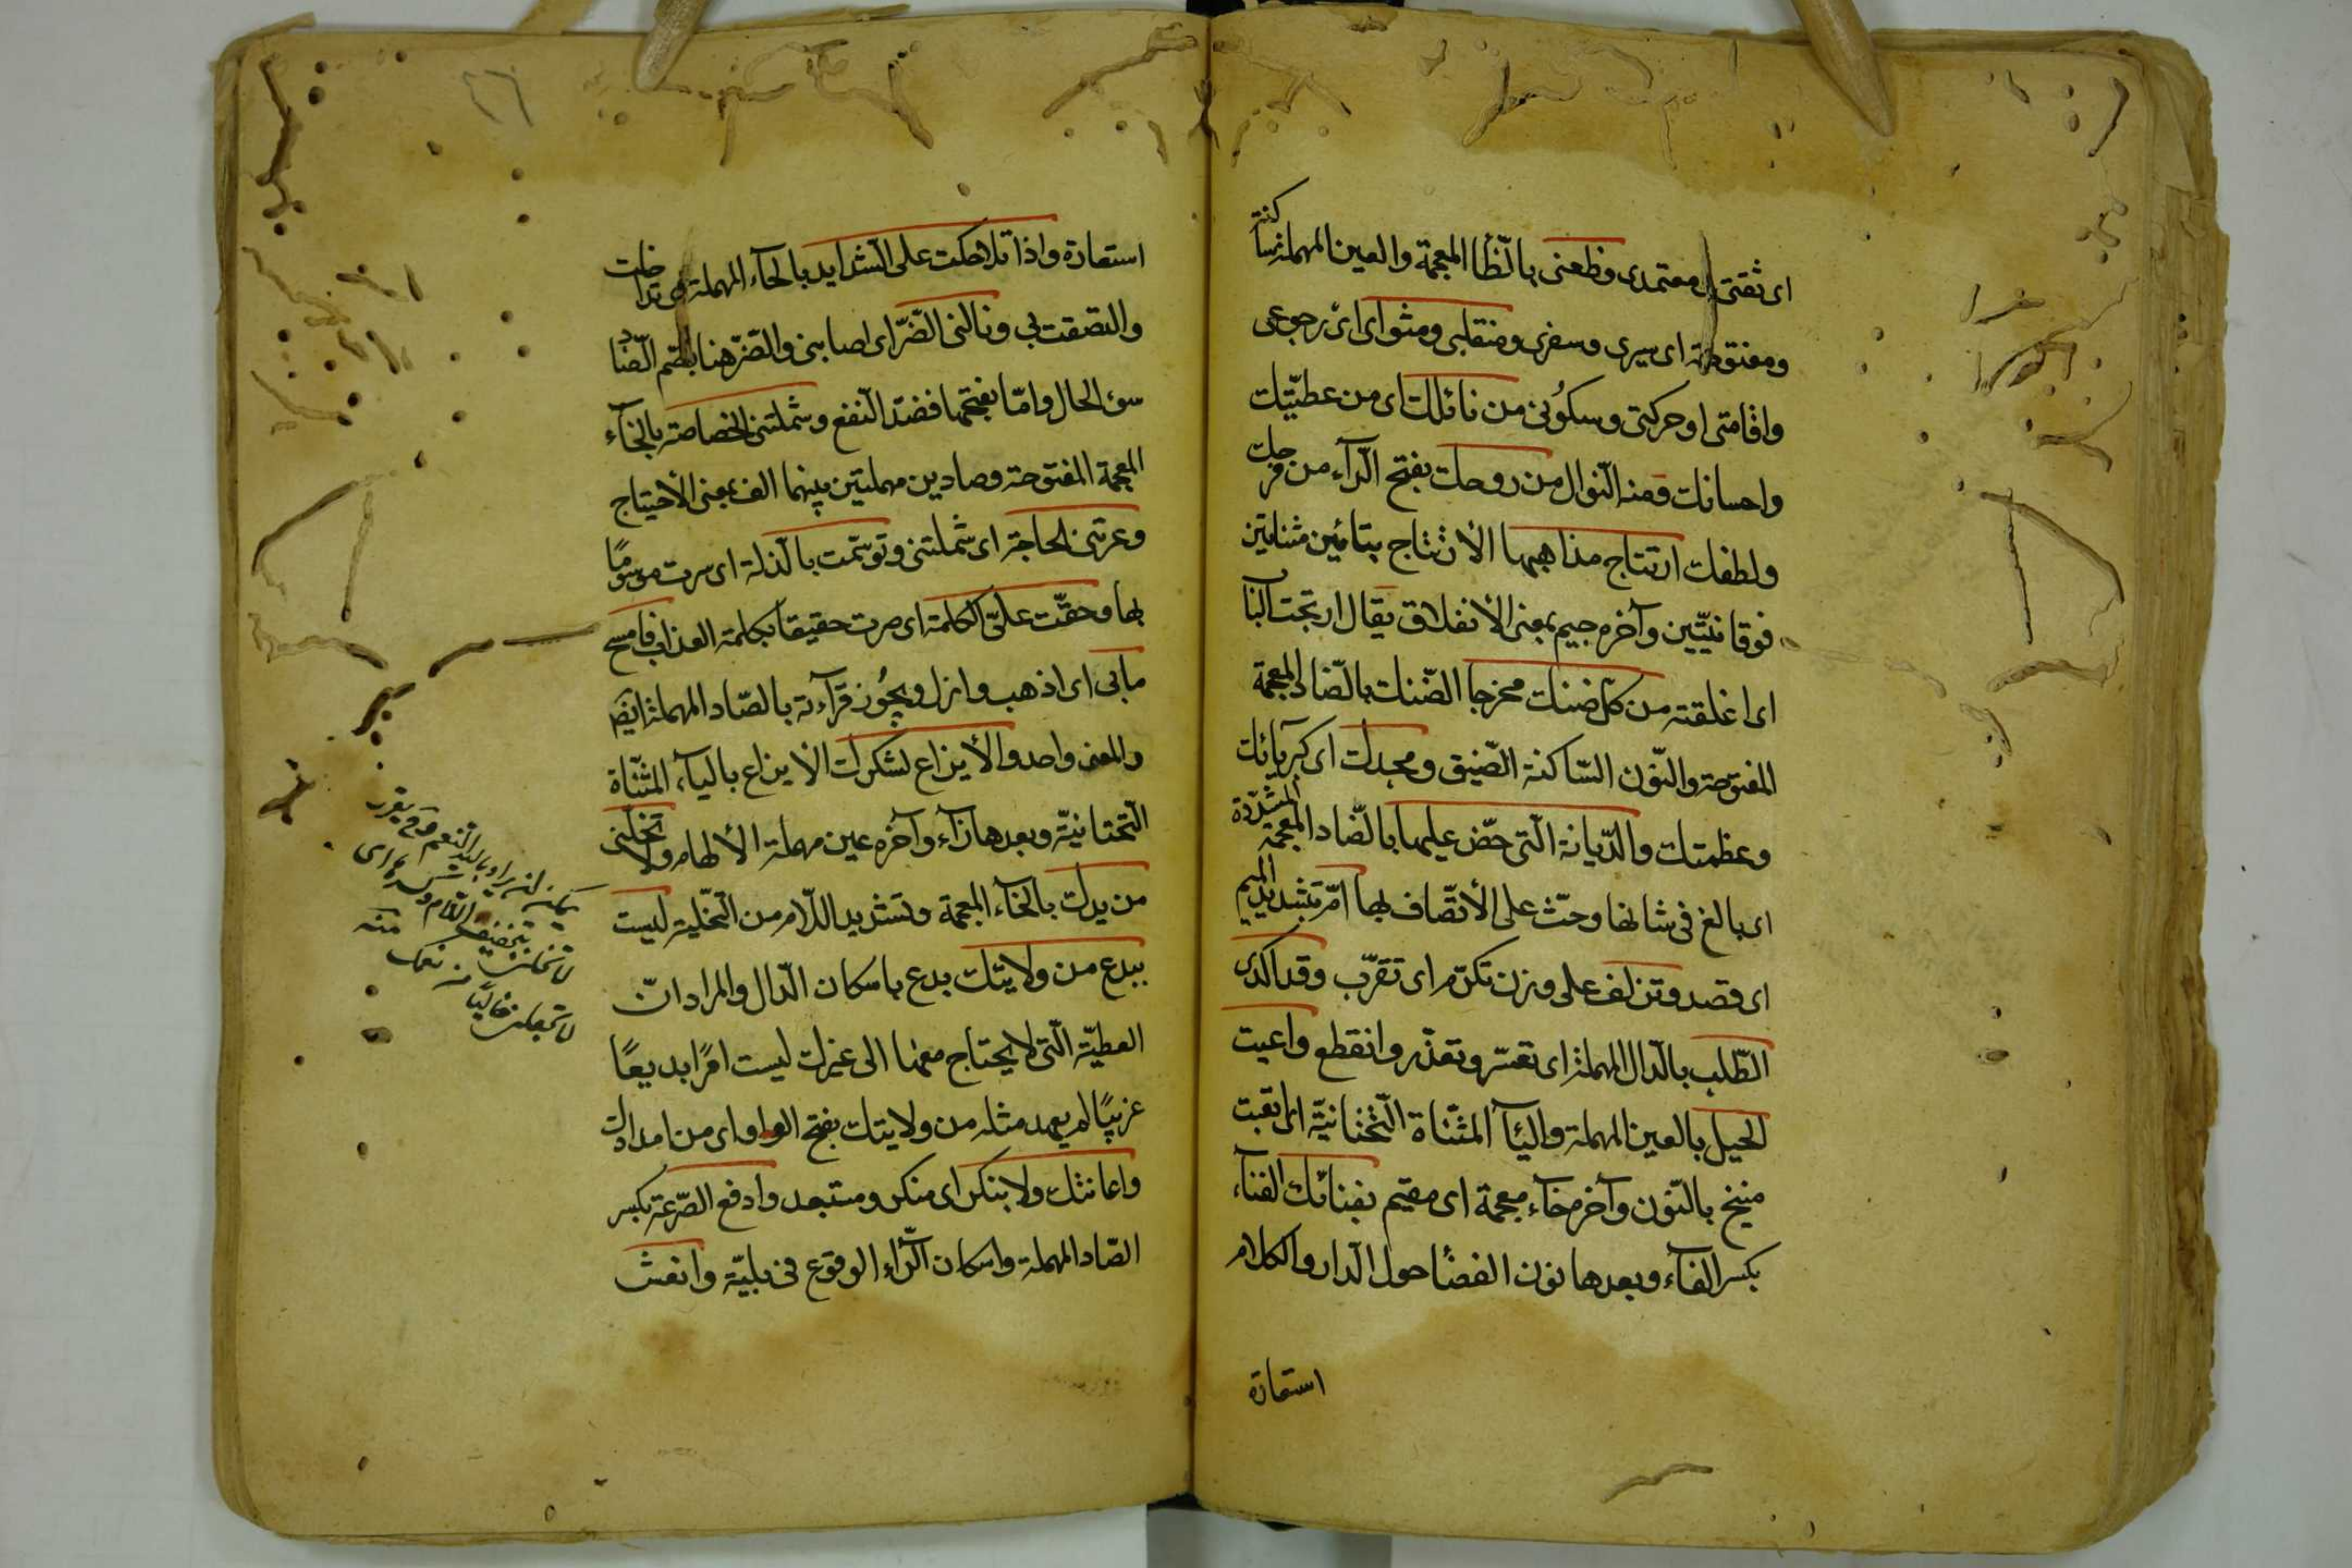 اى ثقتى و معتمدى وظعنى بالظّأ المعجمة والعين المهملة ساكنة
ومفتوحة اى سيرى وسفرى ومنقلبى ومثواى اى رجوعى
واقامتى او حركتى وسكونى من نائلك اى من عطيّتك
واحسانك ومنه النّوال من روحك بفتح الرّآء من فرجك
ولطفك ارتتاج مذاهبها الأرتتاج بتائين مثناتين
فوقانيّتين وآخره جيم بمعنى الأنغلاق يقال ارتجت البا
اى اغلقته من كلّ ضنك مخرجا الضّنك بالضّاد المعجمة
المفتوحة والنّون السّاكنة الضّيق ومجدك اى كبريائك
وعظمتك والدّيانة الّتى حضّ عليها بالضّاد المعجمة المشدّدة
اى بالغ فى شانها وحثّ على الأتّصاف بها امّ بتشديد الميم
اى قصد وتزلف على وزن تكرّم اى تقرّب وقد اكدى
الطّلب بالدّال المهملة اى تعسّر وتعذّر وانقطع واعيت
الحيل بالعين المهملة واليآ المثنّاة التّحتانيّة اى اتعبت
منيخ بالنّون وآخره خآء معجمة اى مقيم بفنائك الفنآء
بكسر الفآء وبعدها نون الفضا حول الدّار والكلام
استعارة
استعارة واذا تلاحكت على الشّدايد بالحآء المهملة اى تداخلت
والتصقت بى ونالنى الضّرّ اى اصابنى والضّرّ هنا بضّم الضّاد
سوء الحال وامّا بفتحها فضدّ النّفع وشملتنى الخصاصة بالخآء
المعجمة المفتوحة وصادين مهملتين بينهما الف بمعنى الأحتياج
وعرتنى الحاجة اى شملتنى وتوسّمت بالذّلة اى صرت موسومًا
بها وحقّت علىّ الكلمة اى صرت حقيقا بكلمة العذاب فامسح
مابى اى اذهب وازل ويجوز قرآءته بالصّاد المهملة ايضا
والمعنى واحد والأيزاع لشكرك الأيزاع بالياء المثنّاة
التّحتانيّة وبعدها زآء وآخره عين مهملة الألهام ولا تخلّنى
من يدك بالخآء المعجمة وتشديد اللّام من التّخلية ليست
ببدع من ولايتك بدع باسكان الدّال والمراد انّ
العطيّة الّتى لا يحتاج معها الى غيرك ليست امرًا بديعًا
غريبًا لم يعهد مثله من ولايتك بفتح الواو اى من امدادك
واعانتك ولا بنكر اى منكر ومستبعد وادفع الصّرعة بكسر
الصّاد المهملة واسكان الرّاء الوقوع فى بليّة وانعش
يمكن ان يراد باليد النّعم
بتخفيف اللّام
منه